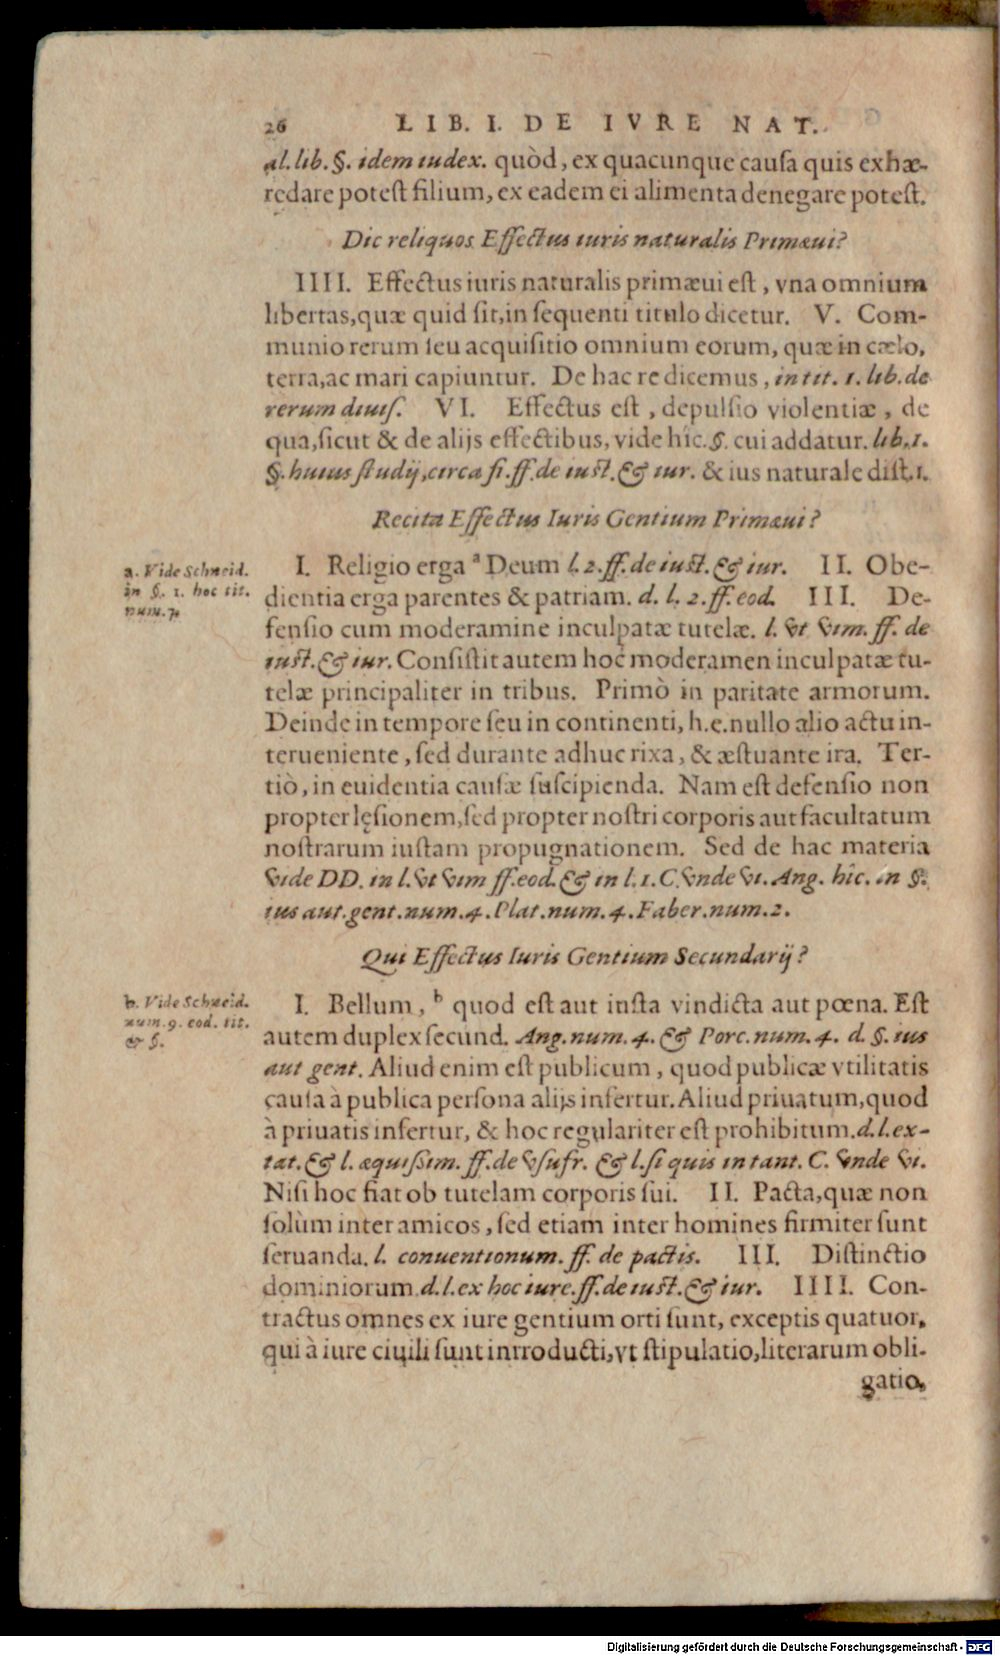 26 LIB. I. DE IVRE NAT.
al. lib. §. idem iudex. quòd, ex quacunque cauſa quis exhæ-
redare poteſt filium, ex eadem ei alimenta denegare poteſt.
Dic reliquos Effectus iuris naturalis Primæui?
IIII. Effectus iuris naturalis primæui eſt, vna omnium
libertas, quæ quid ſit, in ſequenti titulo dicetur. V. Com-
munio rerum ſeu acquiſitio omnium eorum, quæ in cælo,
terra, ac mari capiuntur. De hac re dicemus, in tit. 1. lib. de
rerum diuiſ. VI. Effectus eſt, depulſio violentiæ, de
qua, ſicut & de alijs effectibus, vide hîc. §. cui addatur. lib. 1.
§. huius ſtudij, circa fi. ff. de iuſt. & iur. & ius naturale diſt. 1.
Recita Effectus Iuris Gentium Primæui?
a. Vide Schneid.
in §. 1. hoc tit.
num. 7.
I. Religio erga a Deum l. 2. ff. de iuſt. & iur. II. Obe-
dientia erga parentes & patriam. d. l. 2. ff. eod. III. De-
fenſio cum moderamine inculpatæ tutelæ. l. vt vim. ff. de
iuſt. & iur. Conſiſtit autem hoc moderamen inculpatæ tu-
telæ principaliter in tribus. Primò in paritate armorum.
Deinde in tempore ſeu in continenti, h. e. nullo alio actu in-
terueniente, ſed durante adhuc rixa, & æſtuante ira. Ter-
tiò, in euidentia cauſæ ſuſcipienda. Nam eſt defenſio non
propter lęſionem, ſed propter noſtri corporis aut facultatum
noſtrarum iuſtam propugnationem. Sed de hac materia
vide DD. in l. vt vim ff. eod. & in l. 1. C. vnde vi. Ang. hîc. in §.
ius aut. gent. num. 4. Plat. num. 4. Faber. num. 2.
Qui Effectus Iuris Gentium Secundarij?
b. Vide Schneid.
num. 9. eod. tit.
& §.
I. Bellum, b quod eſt aut iuſta vindicta aut pœna. Eſt
autem duplex ſecund. Ang. num. 4. & Porc. num. 4. d. §. ius
aut gent. Aliud enim eſt publicum, quod publicæ vtilitatis
cauſa à publica perſona alijs infertur. Aliud priuatum, quod
à priuatis infertur, & hoc regulariter eſt prohibitum. d. l. ex-
tat. & l. æquiſſim. ff. de vſufr. & l. ſi quis in tant. C. vnde vi.
Niſi hoc fiat ob tutelam corporis ſui. II. Pacta, quæ non
ſolùm inter amicos, ſed etiam inter homines firmiter ſunt
ſeruanda. l. conuentionum. ff. de pactis. III. Diſtinctio
dominiorum. d. l. ex hoc iure. ff. de iuſt. & iur. IIII. Con-
tractus omnes ex iure gentium orti ſunt, exceptis quatuor,
qui à iure ciuili ſunt introducti, vt ſtipulatio, literarum obli-
gatio,
Digitalisierung gefördert durch die Deutsche Forschungsgemeinschaft - DFG